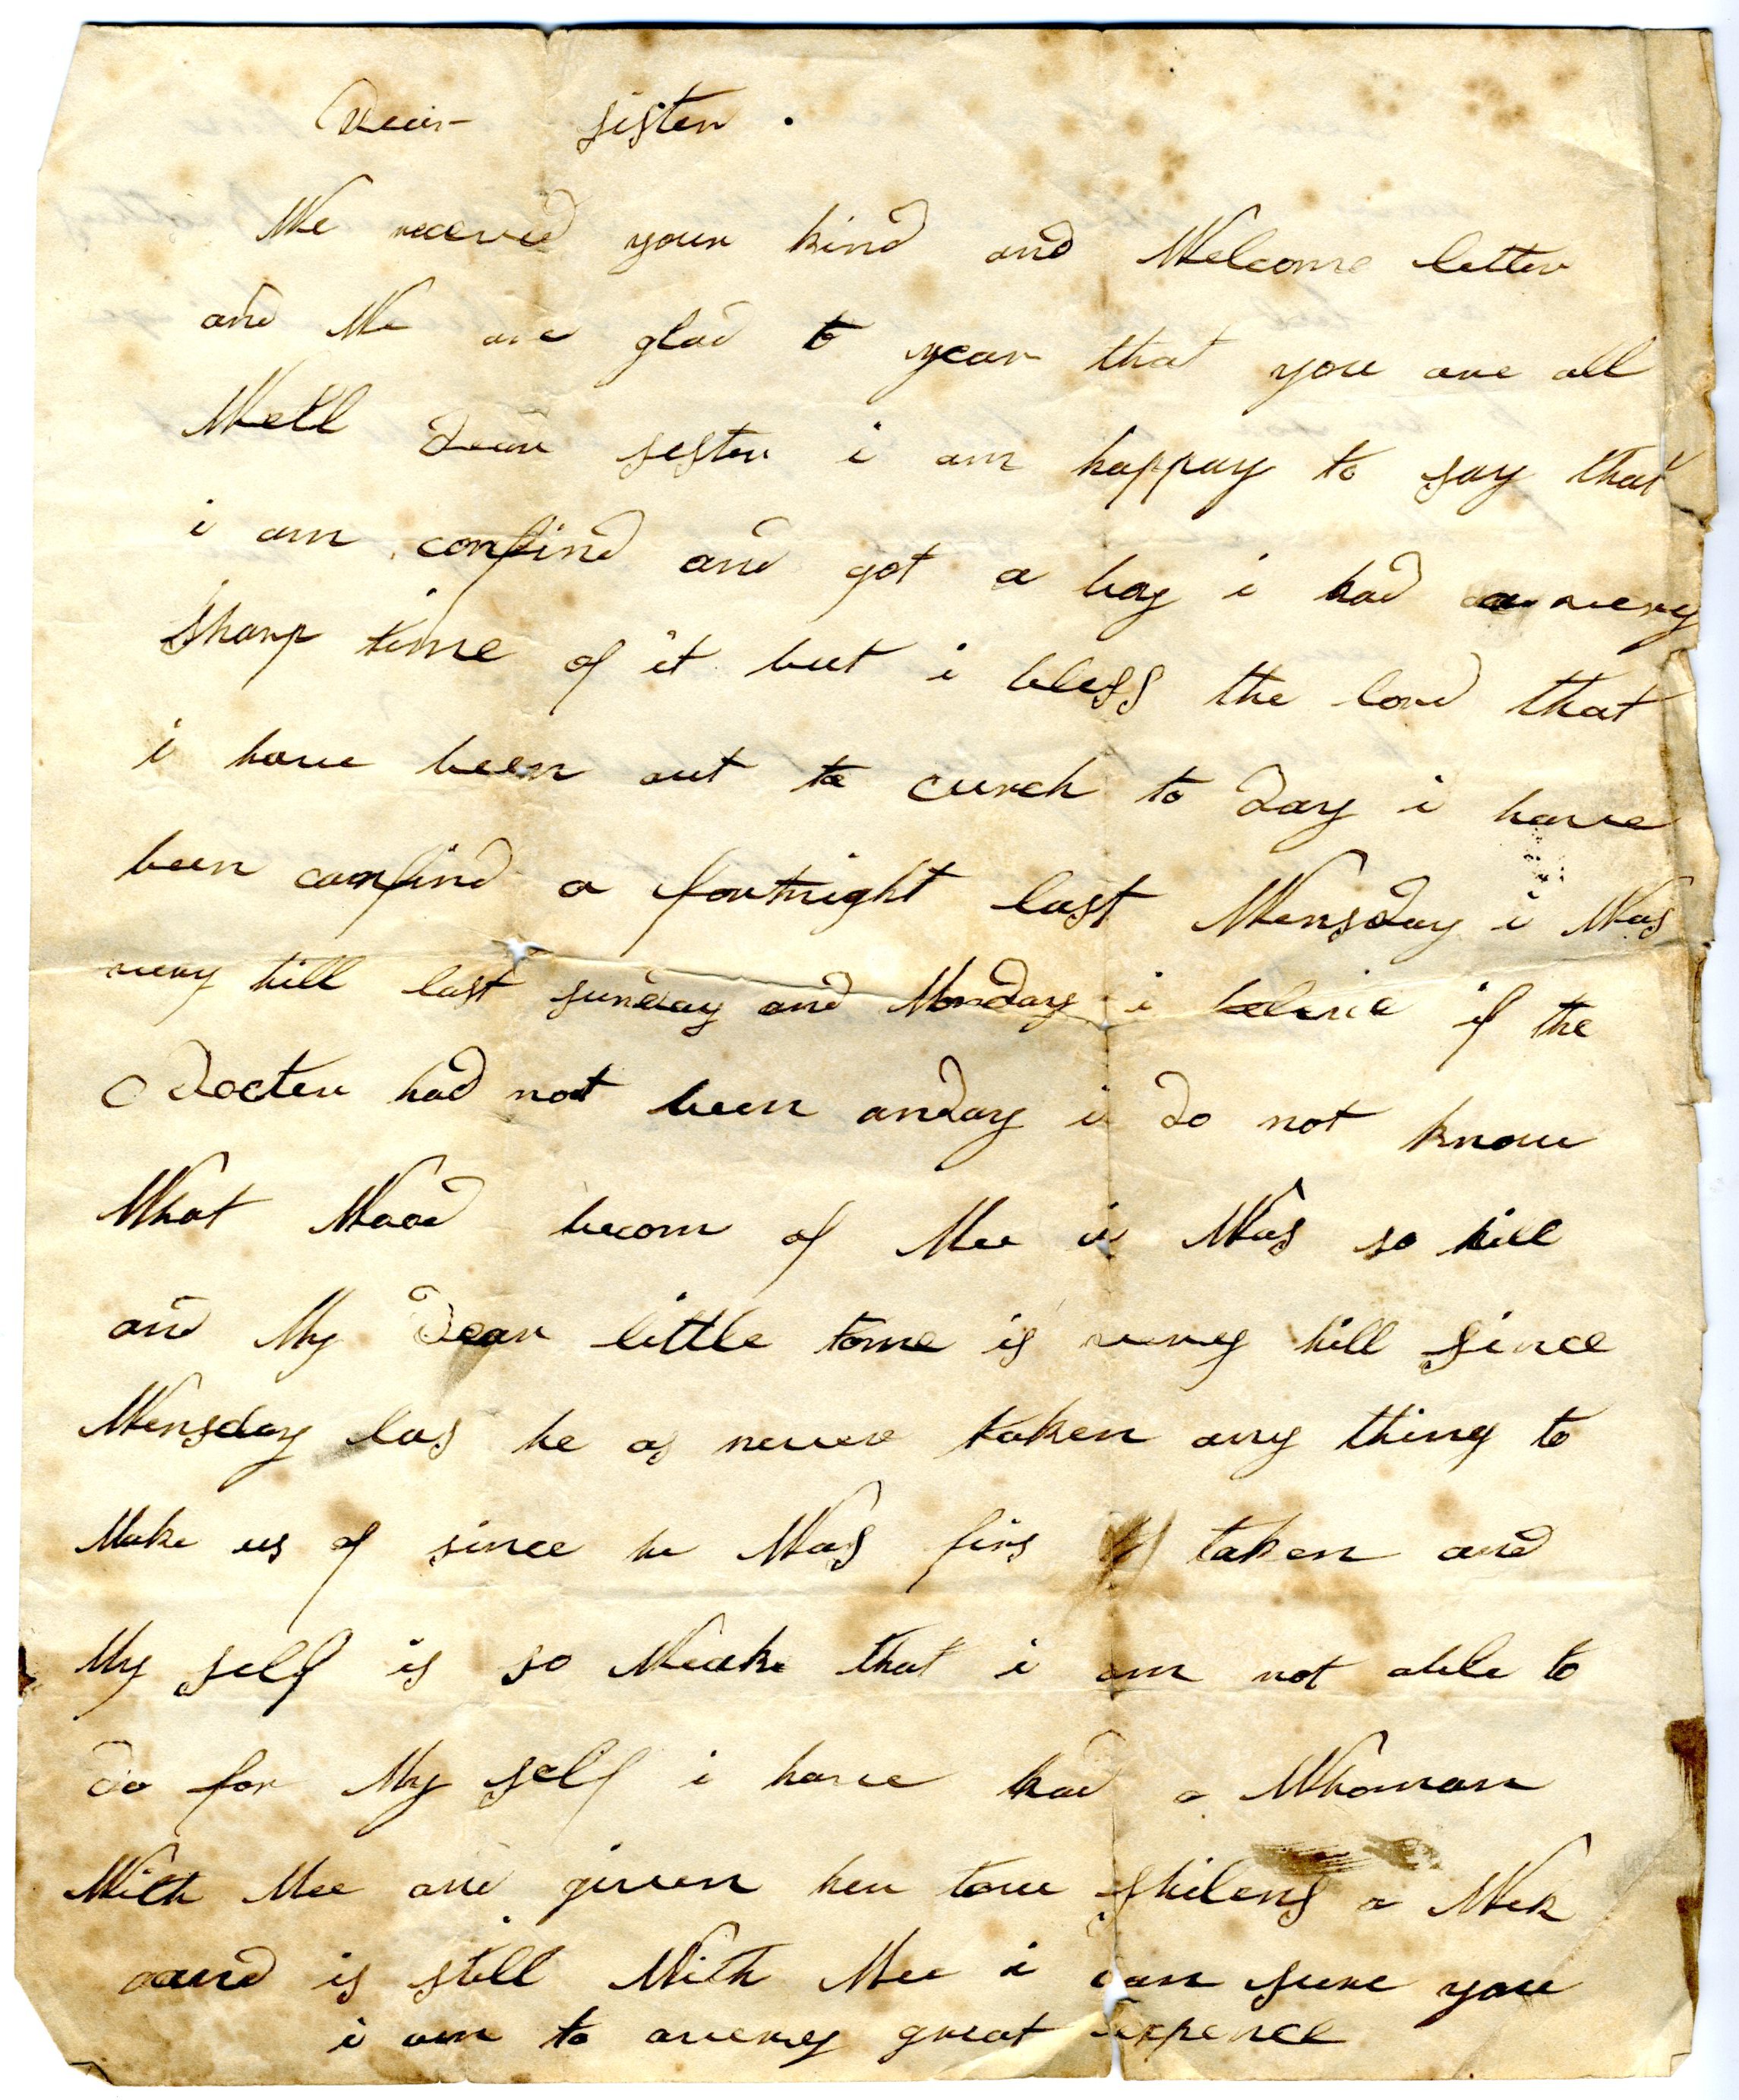 Dear sister .
We received your kind and Welcome letter
and We are glad to year that you are all
Well dear sester i am happay to say that
i am confind and got a boy i had a very
sharp time of it but i bless the lord that
i have been out to curch to day i have
been confind a fortnight last Wensday i Was
very hill last sunday and Monday i beleive if the
docter had not been anday i do not know
What Wood becom of Mee i Was so hill
and My dear little tome is very hill since
Wensday las he as never taken any thing to
Make us of since he Was firs taken and
My self is so Weake that i am not able to
do for My self i have had a Whoman
With Mee and given her tow shilens a Wek
and is still With Mee i can sure you
i am to avery great expence